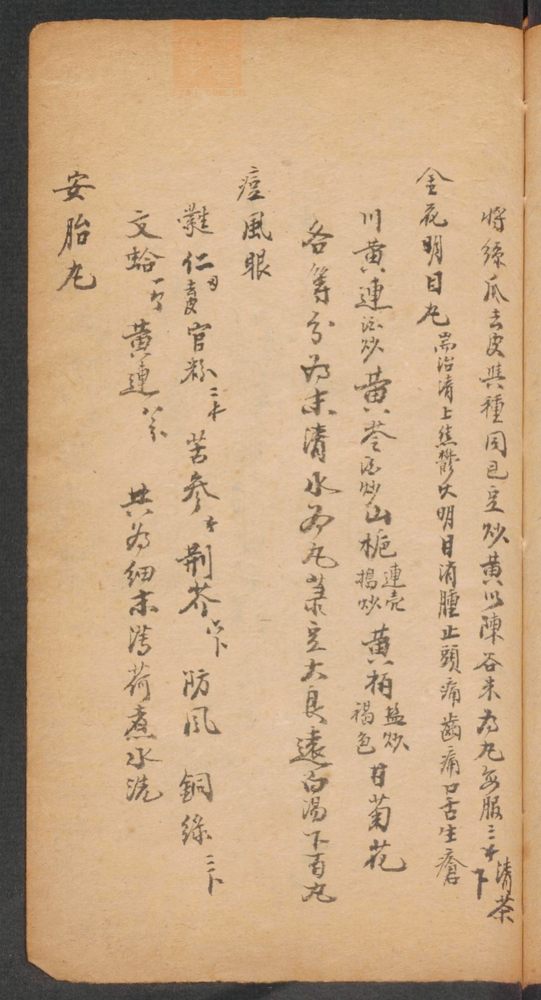 将絲瓜去皮與種同巴豆炒黄以陳谷米為丸每服三錢清茶下
金花明目丸 崇治清上焦鬱火明目消腫止頭痛齒痛口舌生瘡
川黄連酒炒黄芩酒炒山梔連壳揭炒黄柏盐炒褐色甘菊花
各等分為末清水為丸菉豆大良遠白湯下百丸
痘風眼
仁去皮官粉二 苦参 荆芥 防風 銅綠
文蛤 黄連 共為細末薄荷煮水洗
安胎丸